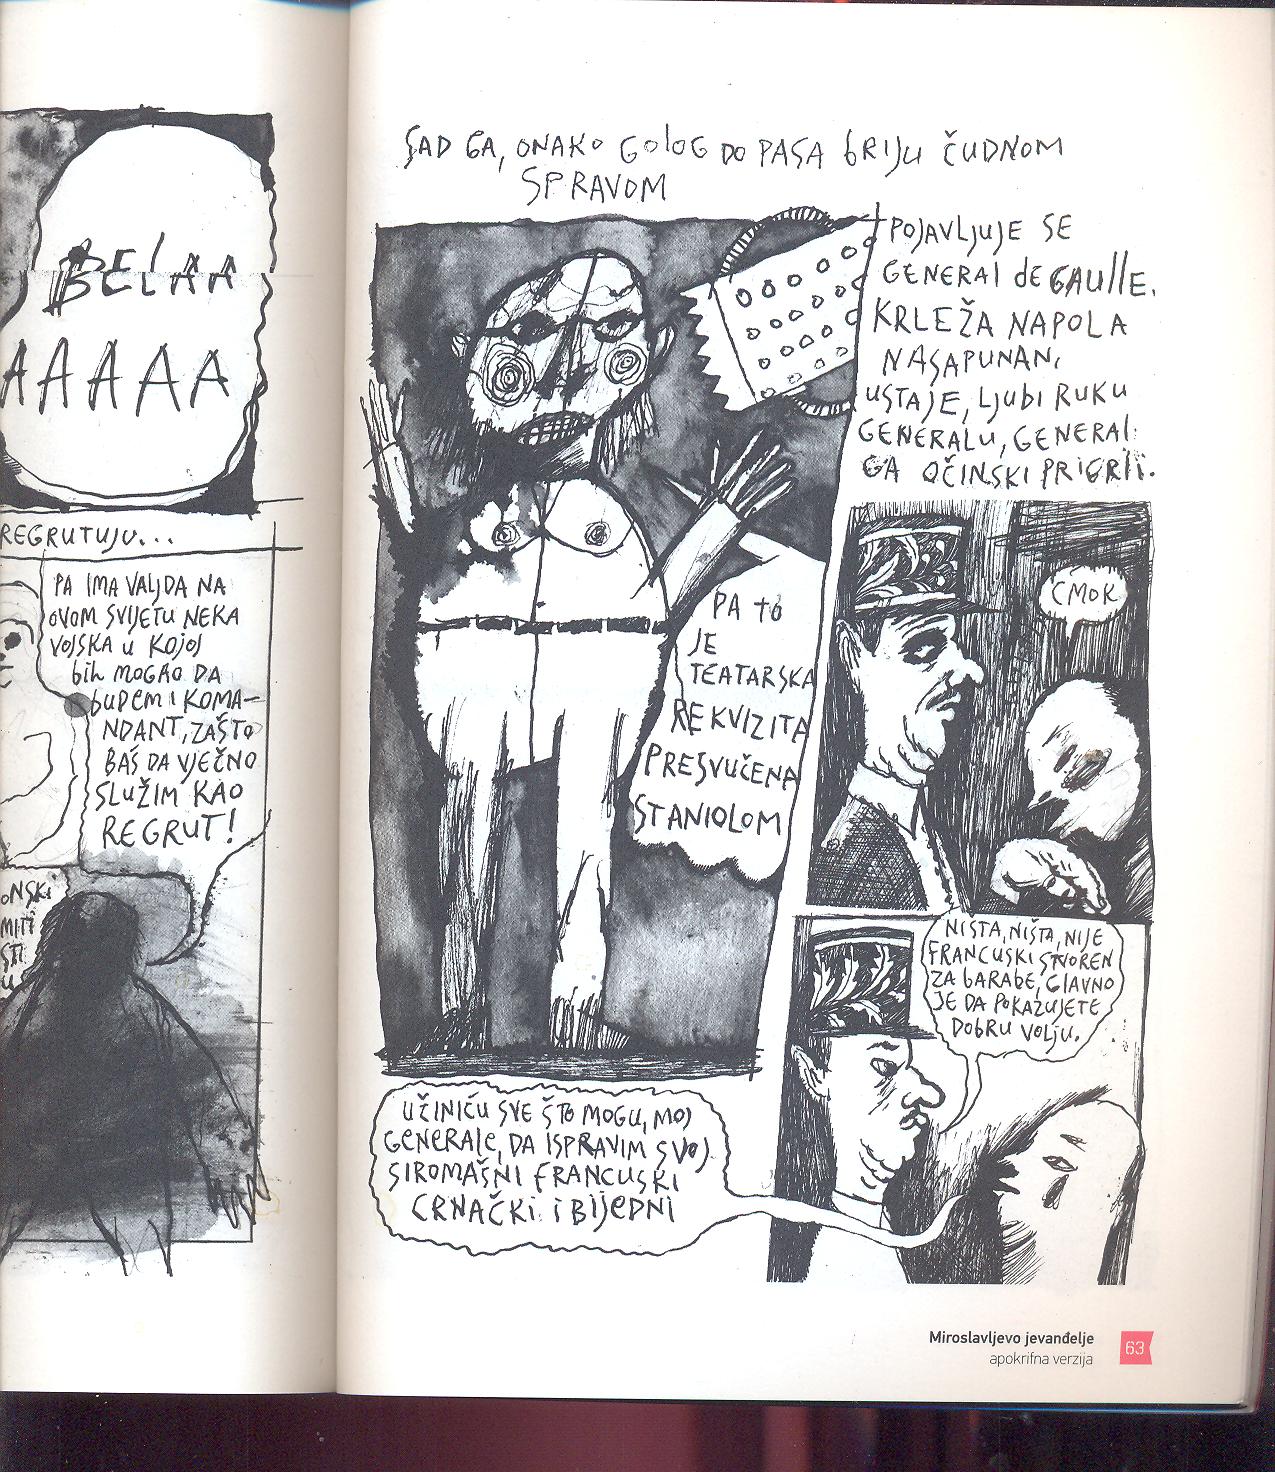 BELAA
AAAAA
REGRUTUJU...
PA IMA VALJDA NA
OVOM SVIJETU NEKA
VOJSKA U KOJOJ
bih MOGAO DA
buDem i KOMA-
NDANT, ZAŠTO
BAŠ DA VJEČNO
SLUŽIM KAO
REGRUT!
ONSKi
MITI
STI
U
SAD GA, ONAKO GOLOG DO PASA bRIJU ČUDNOM
SPRAVOM
POJAVLJUJE SE
GENERAl de GAUlle.
KRLEŽA NAPOLA
NASAPUNAN,
USTAJE, LJUbi RUKU
GENERALU, GENERAl
GA OČINSKI PRIGRLI.
PA tO
JE
TEATARSKA
REKVIZITA
PRESVUČENA
STANIOLOM
CMOK
NIŠTA, NIŠTA, NIJE
FRANCUSKI STVOREN
ZA bARAbE, GlAVNO
JE DA POKAZUJETE
DOBRU VOLJU.
UČINIĆU SVE ŠTO MOGU, MOJ
GENERAle, DA ISPRAVIM SVOJ
SIROMAŠNI FRANCUSKI
CRNAČKI i BIJEDNI
Miroslavljevo jevanđelje
63
apokrifna verzija